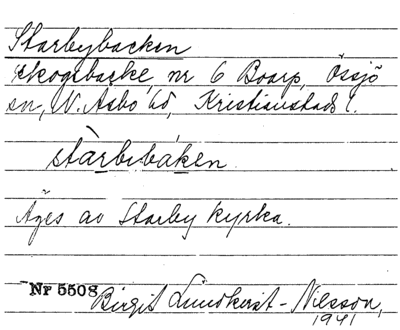 Starbybacken
skogsbacke, nr 6 Boarp, Össjö
sn, N. Åsbo hd, Kristianstads l.
stàrbibáken
Äges av Starby kyrka.
Nr 5508
Birgit Lundkvist-Nilsson,
1941